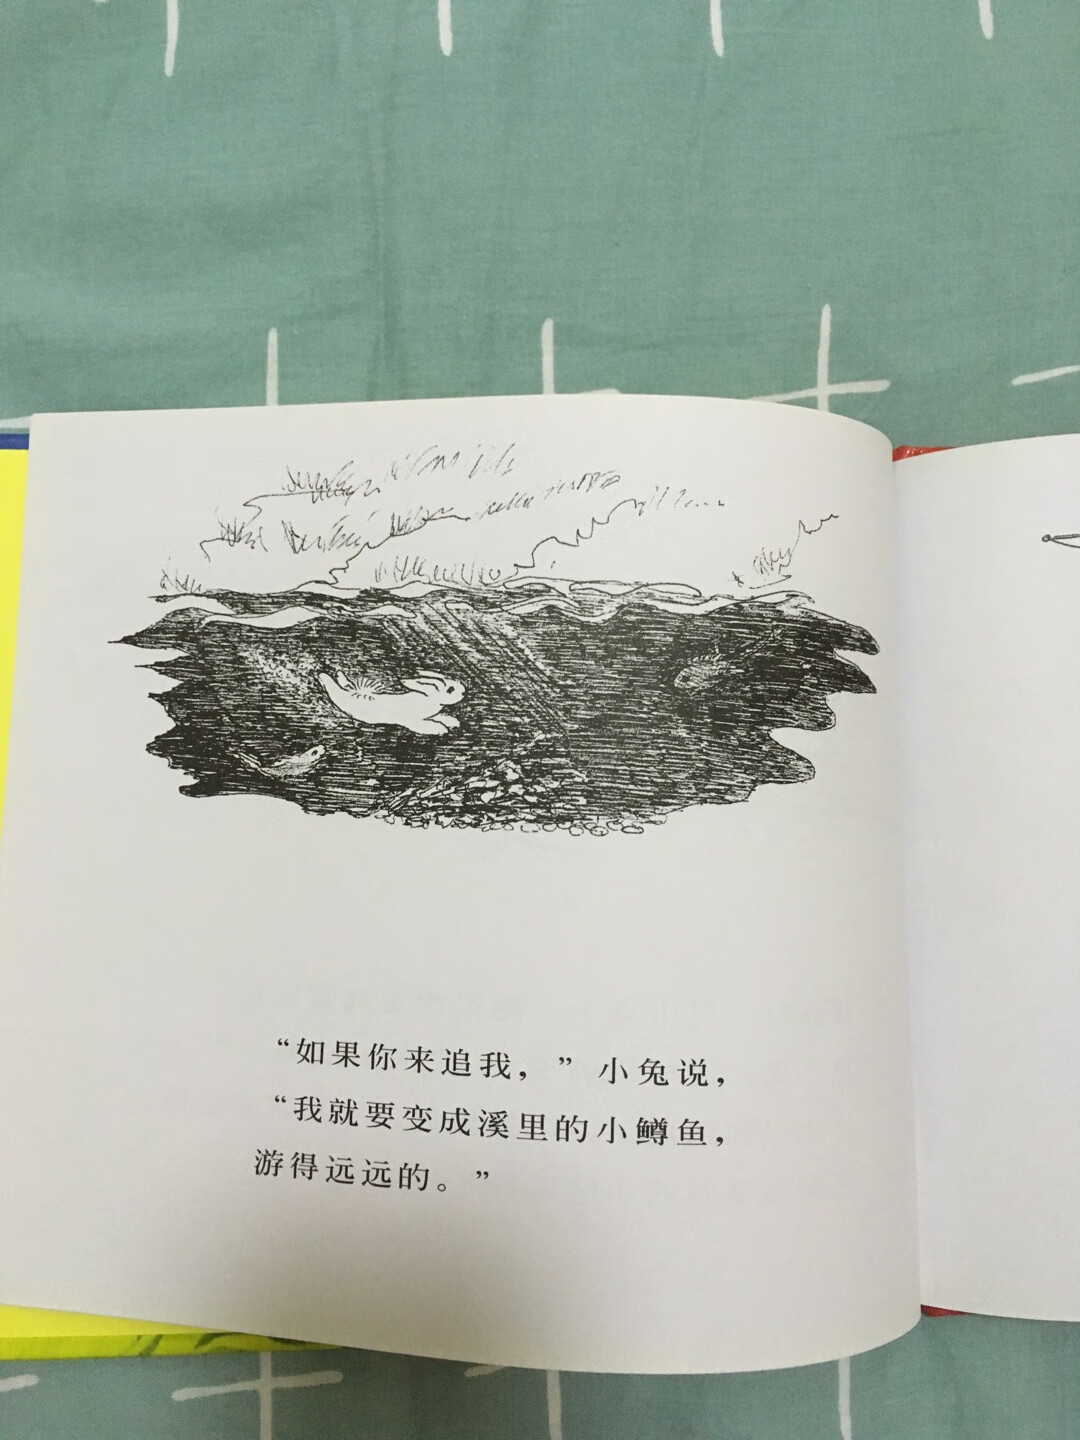 “如果你来追我，”小兔说，
“我就要变成溪里的小鳟鱼，
游得远远的。”